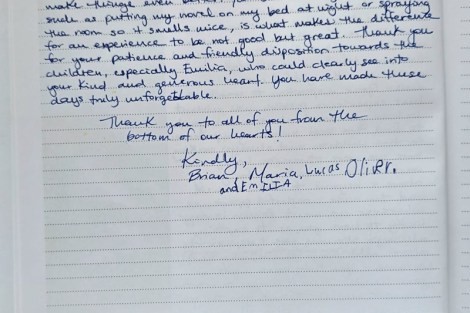 make things even better. You
such as putting my novel on my bed at night or spraying
the room so it smells nice, is what makes the difference
for an experience to be not good but great. Thank you
for your patience and friendly disposition towards the
children, especially Emilia, who could clearly see into
your kind and generous heart. You have made these
days truly unforgettable.
Thank you to all of you from the
bottom of our hearts!
Kindly,
Brian, Maria, Lucas Oliver.
and EmILIA